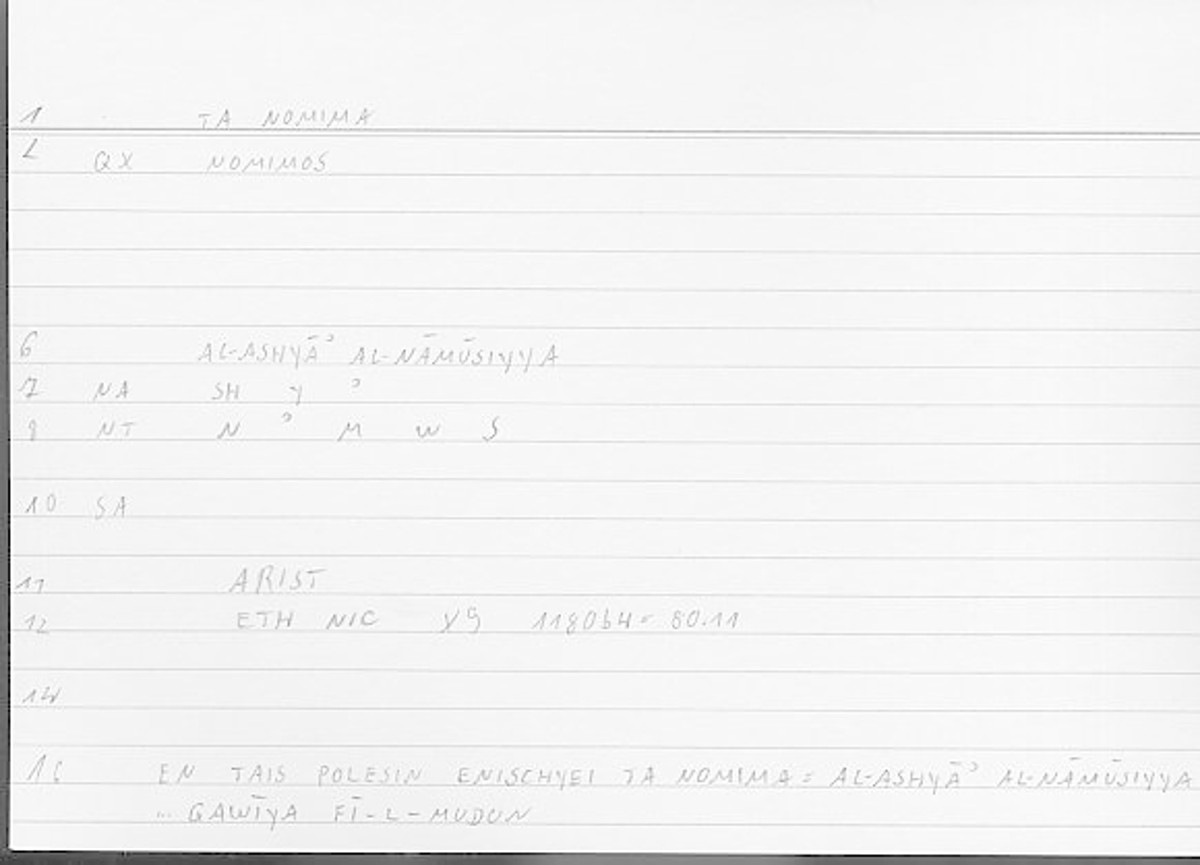 1 TA NOMIMA
2 QX NOMIMOS
6 AL-ASHYĀʾ AL-NĀMŪSIYYA
7 NA SH Y ʾ
8 NT N ʾ M W S
10 SA
11 ARIST
12 ETH NIC 118064 = 80.11
14
16 EN TAIS POLESIN ENISCHYEI TA NOMIMA = AL-ASHYĀʾ AL-NĀMŪSIYYA
... QAWĪYA FĪ-L-MUDUN